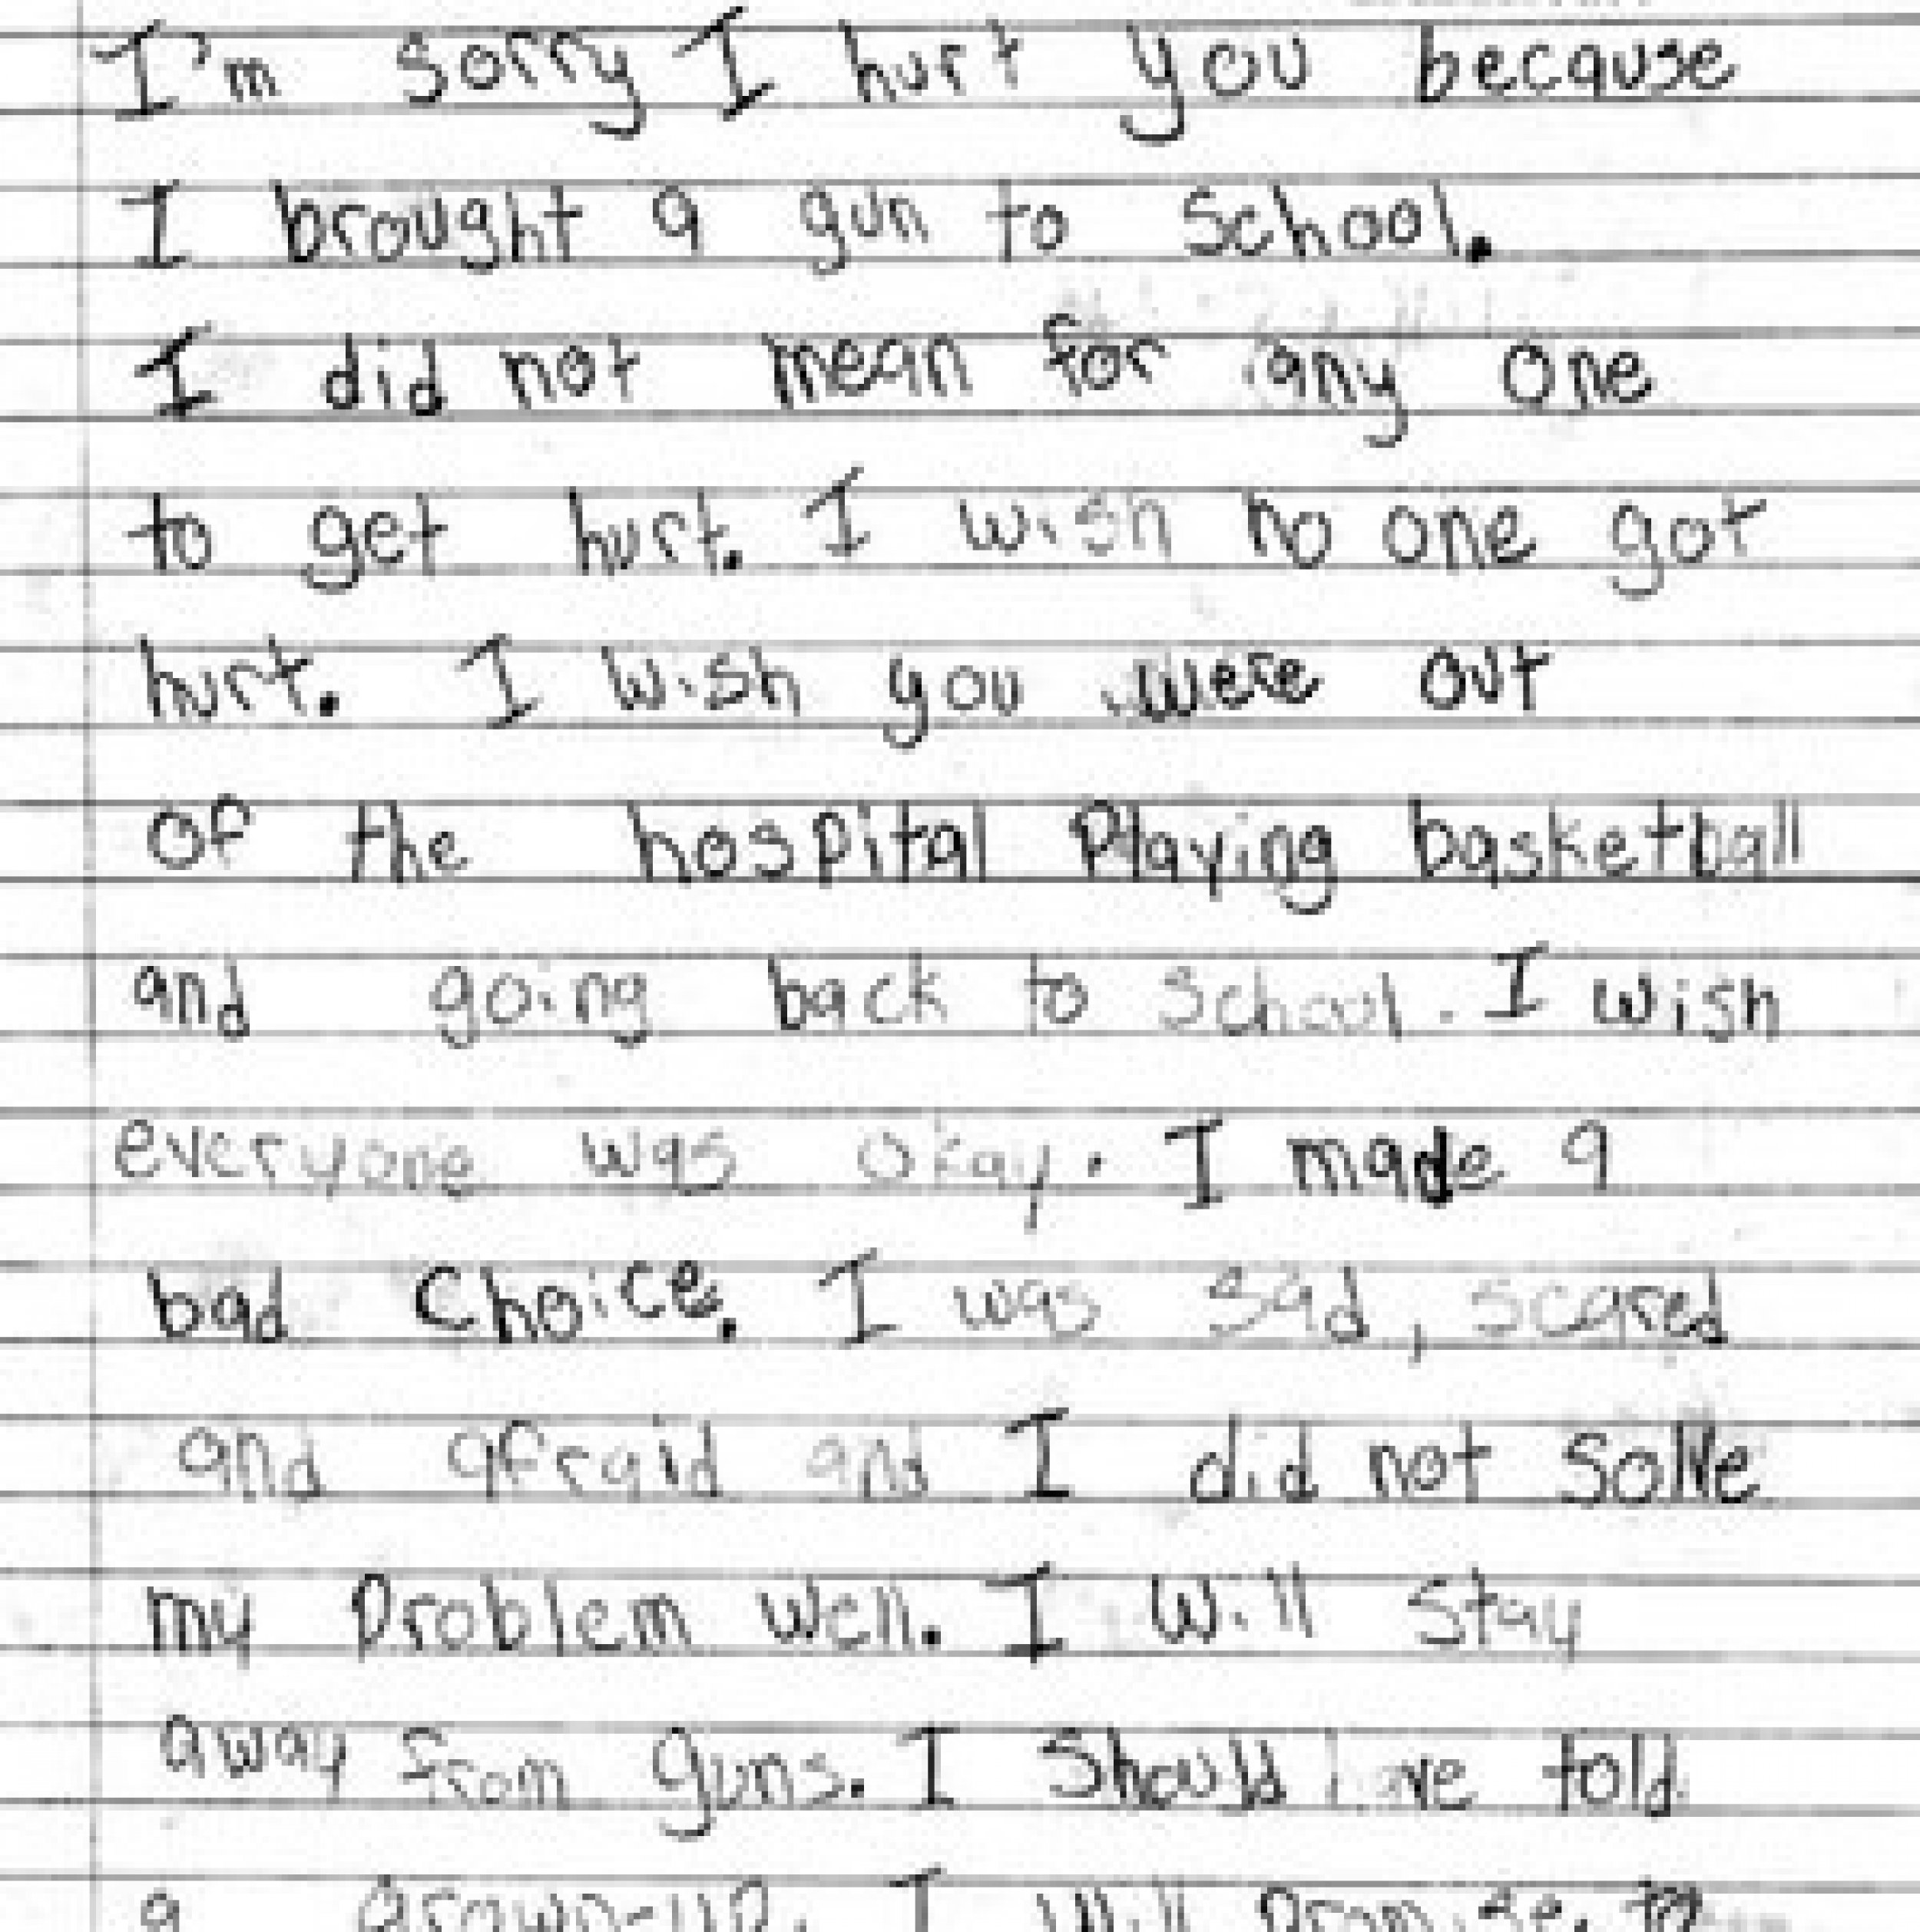 I'm sorry I hurt you because
I brought a gun to school.
I did not mean for any one
to get hurt. I wish no one got
hurt. I wish you were out
of the hospital Playing basketball
and going back to school. I wish
everyone was okay. I made a
bad Choice. I was sad, scared
and afraid and I did not solve
my Problem well. I will stay
away from guns. I should have told
a grown-up. I will promise to